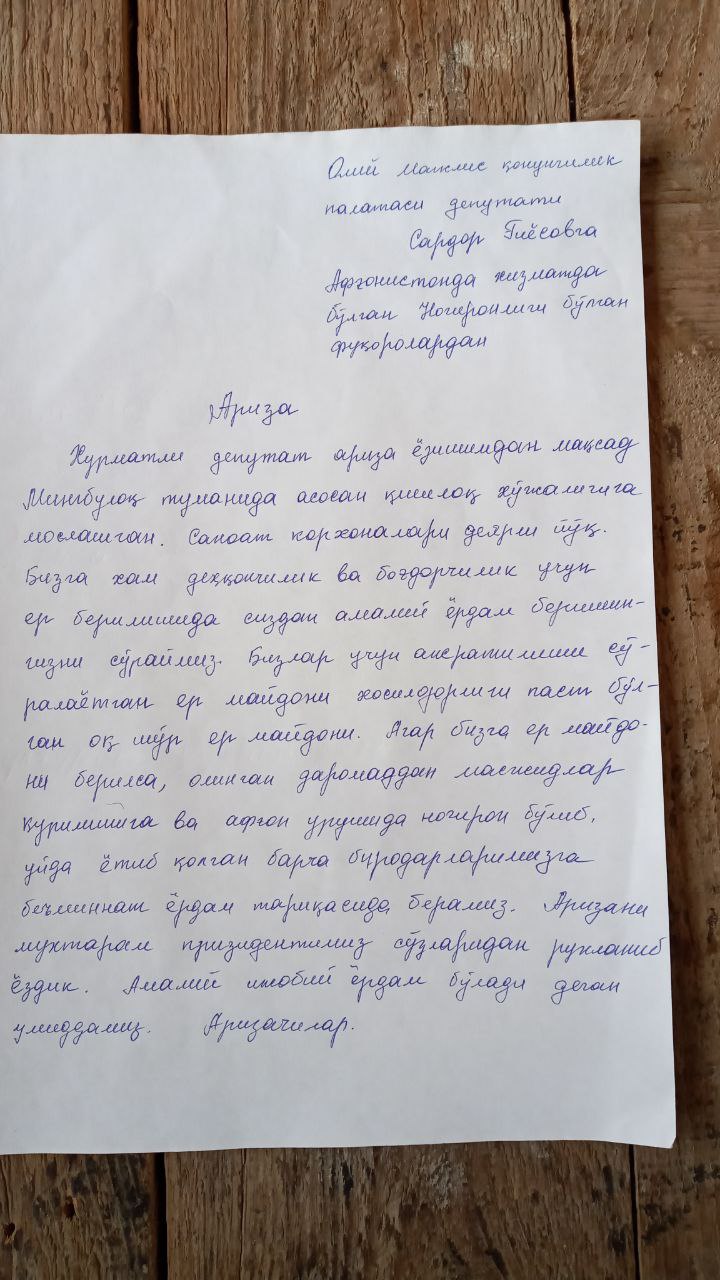 Олий мажлис қонунчилик
палатаси депутати
Сардор Ғиёсовга
Афғонистонда хизматда
бўлган Ногиронлиги бўлган
фуқоролардан
Ариза
Хурматли депутат ариза ёзишимдан мақсад
Мингбулоқ туманида асосан қишлоқ хўжалигига
мослашган. Саноат корхоналари деярли йўқ.
Бизга хам деҳқончилик ва боғдорчилик учун
ер берилишида сиздан амалий ёрдам беришин-
гизни сўраймиз. Бизлар учун ажратилиши сў-
ралаётган ер майдони хосилдорлиги паст бўл-
ган оқ шўр ер майдони. Агар бизга ер майдо-
ни берилса, олинган даромаддан масжидлар
қурилишига ва афғон урушида ногирон бўлиб,
уйда ётиб қолган барча биродарларимизга
беъминнат ёрдам тариқасида берамиз. Аризани
мухтарам призидентимиз сўзларидан рухланиб
ёздик. Амалий ижобий ёрдам бўлади деган
умиддамиз. Аризачилар.